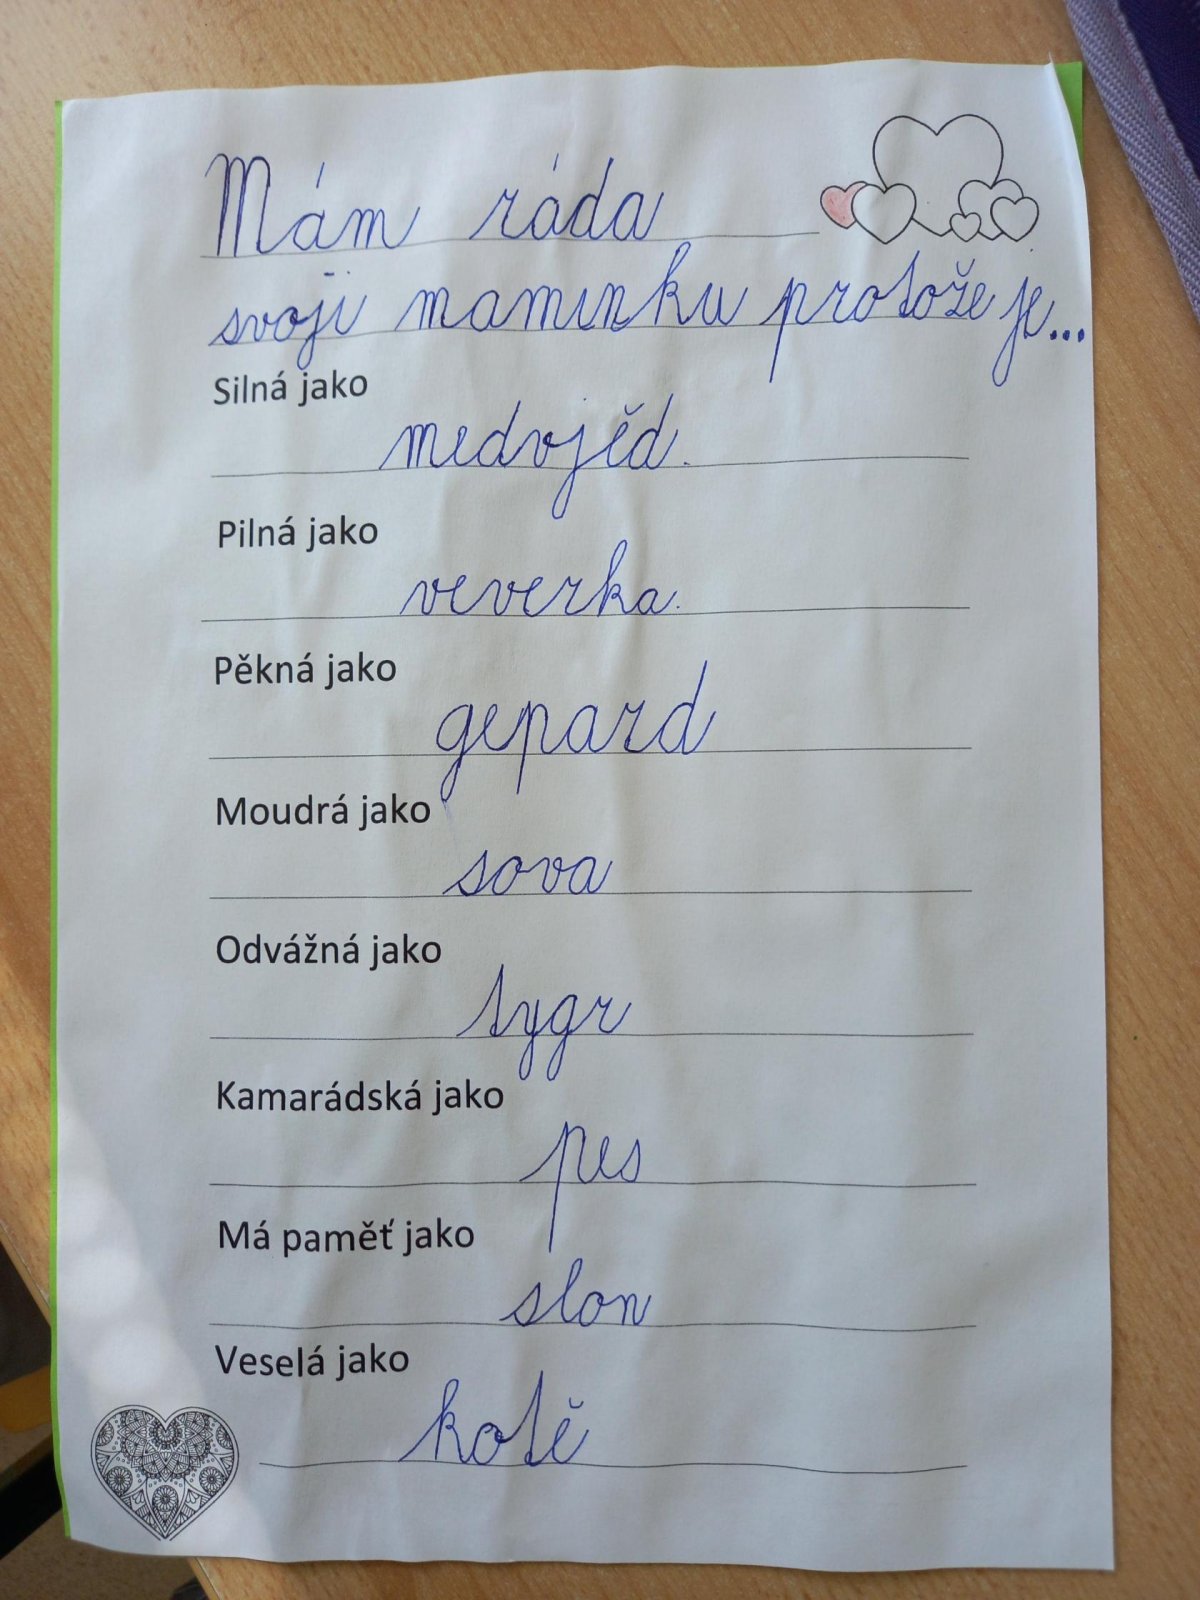 Mám ráda
svoji maminku protože je...
Silná jako
medvjěd.
Pilná jako
veverka.
Pěkná jako
gepard
Moudrá jako
sova
Odvážná jako
tygr
Kamarádská jako
pes
Má paměť jako
slon
Veselá jako
kotě